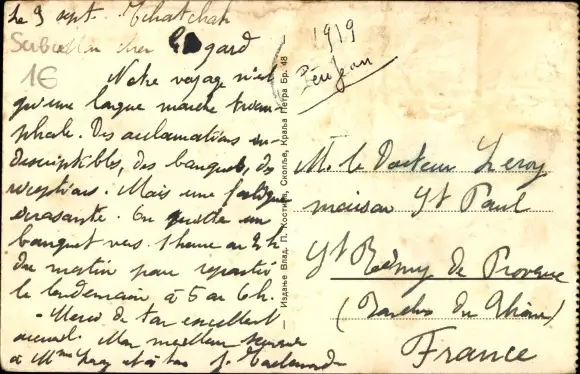 Le 9 sept. Tchatchak
Mon cher
Notre voyage n'est
qu'une longue marche triom-
phale. Des acclamations in-
descriptibles, des banquets, des
réceptions. Mais une fatigue
écrasante. On quitte un
banquet vers 1 heure ou 2 h
du matin pour repartir
le lendemain à 5 ou 6h.
- Merci de ton excellent
accueil. Mon meilleur souvenir
à Mme Leroy et à toi
Serbien
1€
— Издање Влад. П. Костића, Скопље, Краља Петра Бр. 48 —
1919
M. le Docteur Leroy
maison St Paul
St Rémy de Provence
(Bouches du Rhône)
France